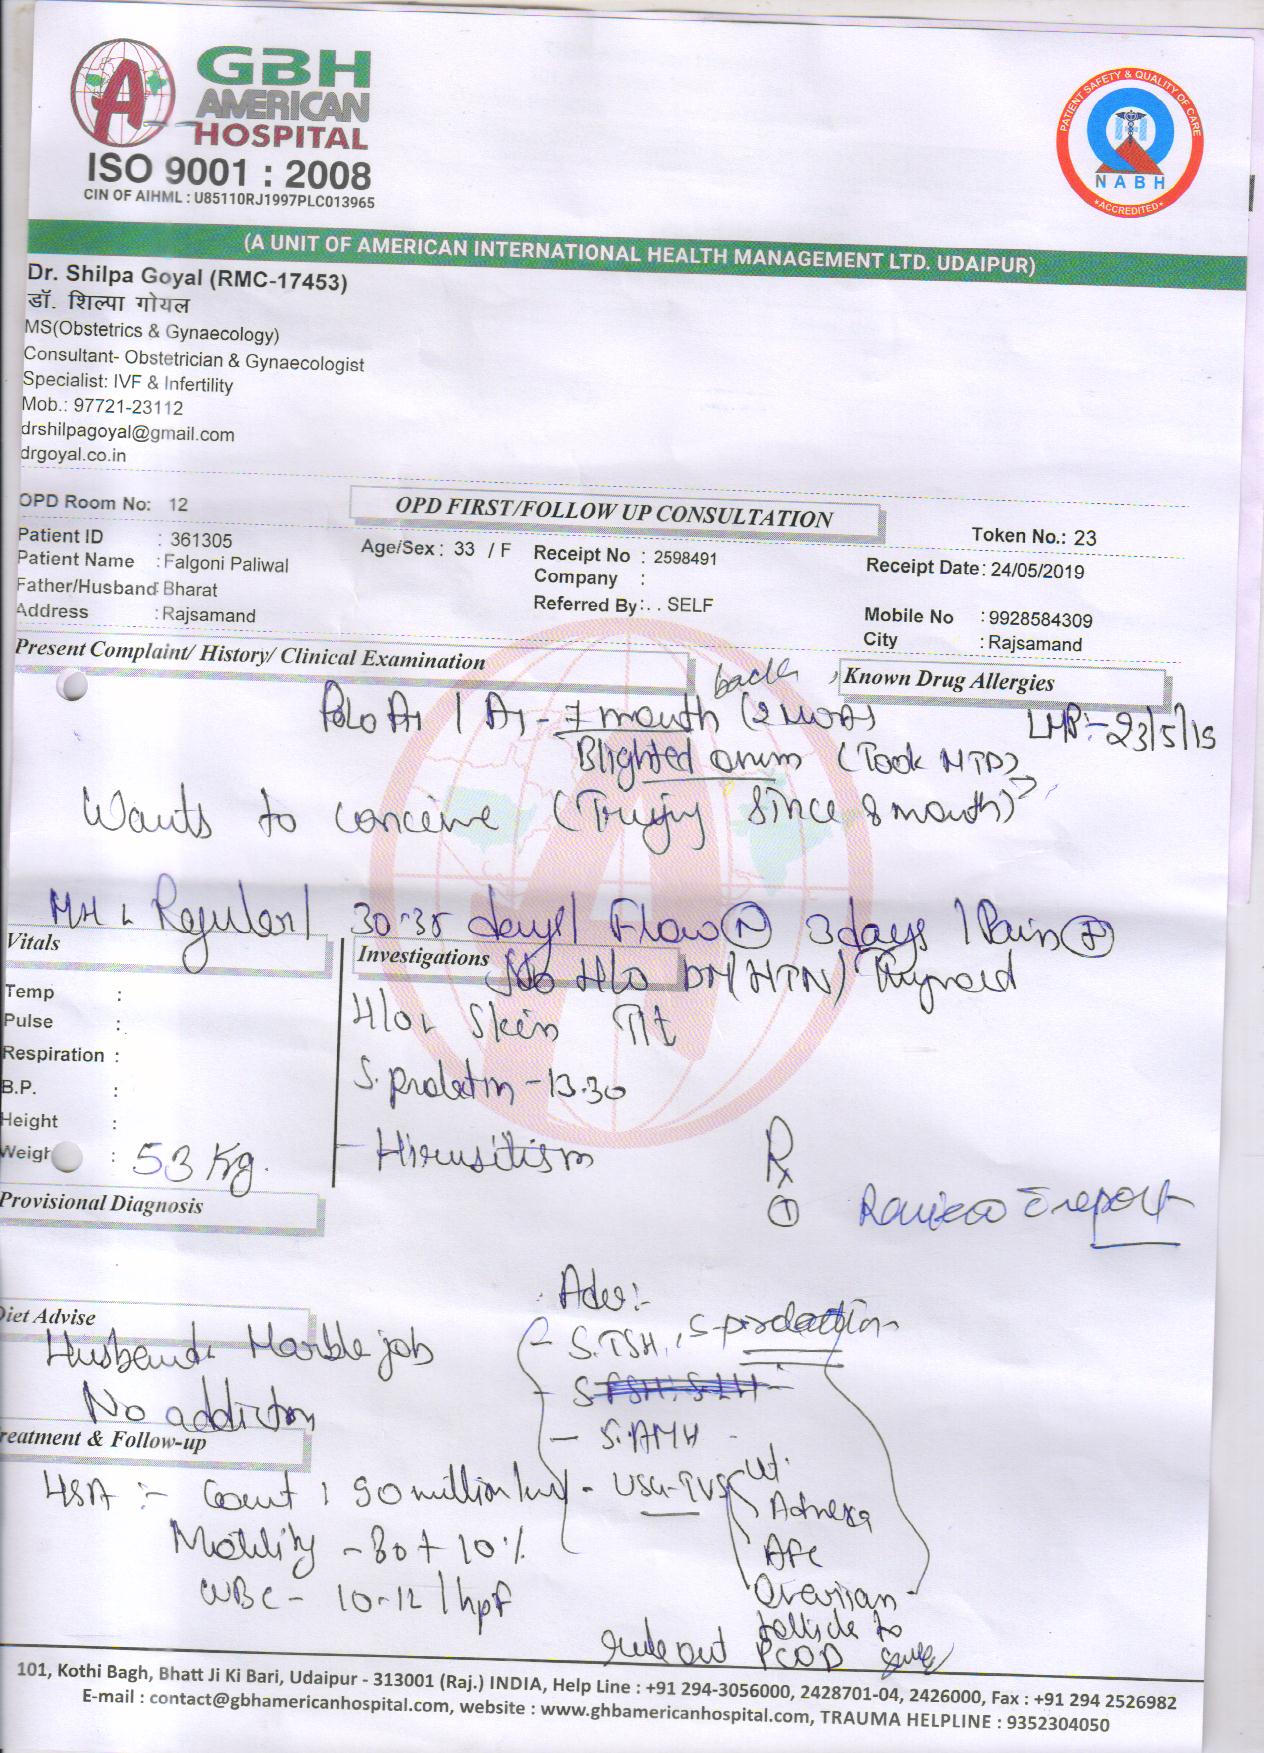 GBH
AMERICAN
HOSPITAL
ISO 9001 : 2008
CIN OF AIHML : U85110RJ1997PLC013965
PATIENT SAFETY & QUALITY OF CARE
NABH
*ACCREDITED*
(A UNIT OF AMERICAN INTERNATIONAL HEALTH MANAGEMENT LTD. UDAIPUR)
Dr. Shilpa Goyal (RMC-17453)
डॉ. शिल्पा गोयल
MS(Obstetrics & Gynaecology)
Consultant- Obstetrician & Gynaecologist
Specialist: IVF & Infertility
Mob.: 97721-23112
drshilpagoyal@gmail.com
drgoyal.co.in
OPD Room No: 12
OPD FIRST/FOLLOW UP CONSULTATION
Token No.: 23
Patient ID : 361305
Age/Sex : 33 / F
Receipt No : 2598491
Receipt Date: 24/05/2019
Patient Name : Falgoni Paliwal
Company :
Father/Husband Bharat
Referred By:. . SELF
Mobile No : 9928584309
Address : Rajsamand
City : Rajsamand
Present Complaint/ History/ Clinical Examination
Known Drug Allergies
back
P0L0A1 / A1 - 7 month (2 MOA)
LMP:- 23/5/19
Blighted ovum (Took MTP)
Wants to conceive (Trying since 8 month)
MH L Regular / 30-35 days / Flow N 3 days / Pain +
Vitals
Investigations
No H/O DM/HTN/Thyroid
Temp :
H/O L Skin Tlt
Pulse :
Respiration :
S. prolactin - 13.30
B.P. :
Height :
Weigh : 53 Kg.
- Hirusitism
Rx
Provisional Diagnosis
① Review c̄ report
Adv:-
Diet Advise
Husband L Marble job
- S.TSH, S-prolactin
No addiction
- S. FSH, S. LH -
Treatment & Follow-up
- S. AMH -
HSA :- Count : 90 million/ml
- USG-TVS Ut.
Adnexa
Motility - 80 + 10 %
AFC
WBC - 10-12 / hpf
Ovarian
follicle to
rule out PCOD
101, Kothi Bagh, Bhatt Ji Ki Bari, Udaipur - 313001 (Raj.) INDIA, Help Line : +91 294-3056000, 2428701-04, 2426000, Fax : +91 294 2526982
E-mail : contact@gbhamericanhospital.com, website : www.ghbamericanhospital.com, TRAUMA HELPLINE : 9352304050